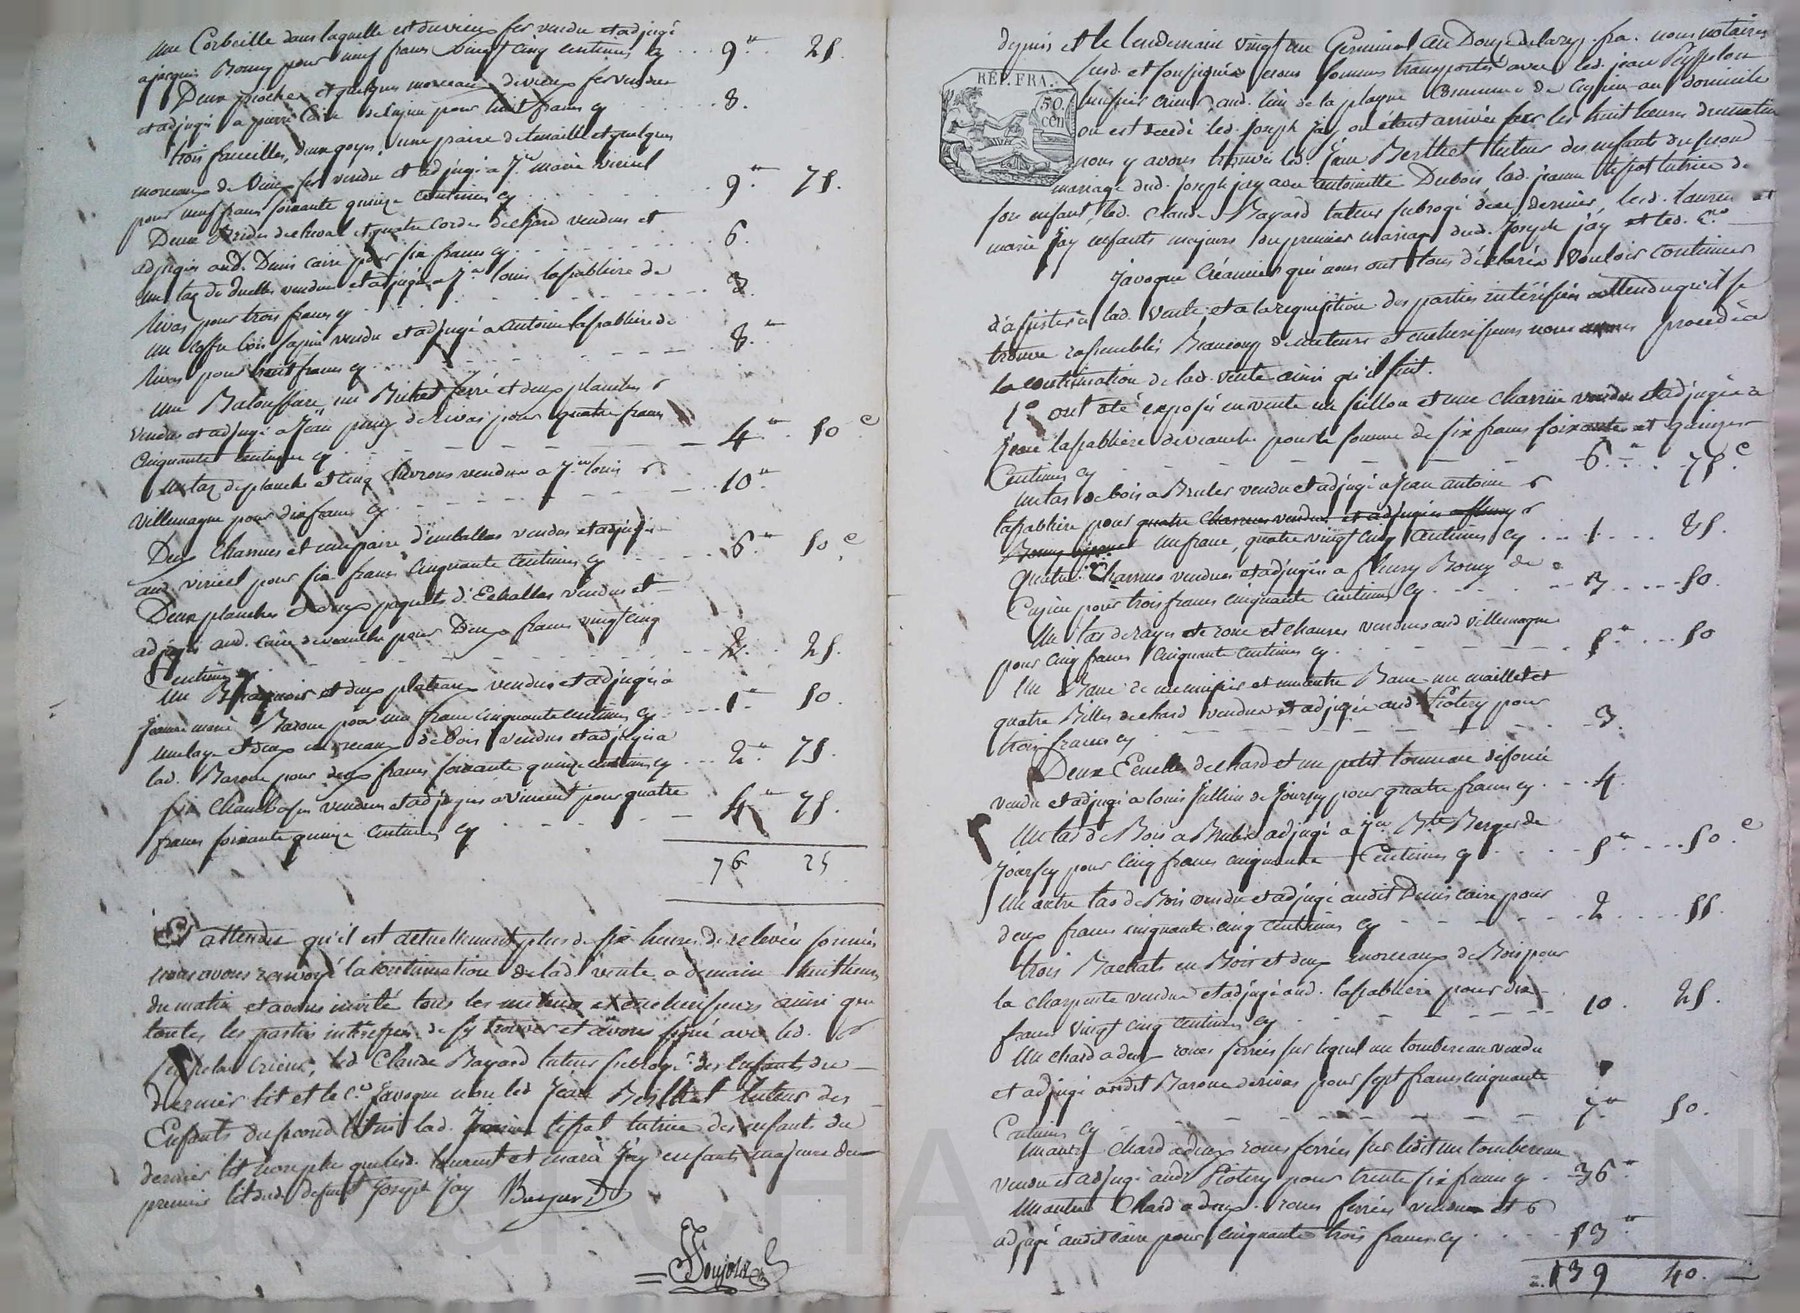 une Corbeille dans laquelle est du vieux fer vendu et adjugé
a jacques Bony pour neuf francs vingt cinq centimes cy ... 9 25.
Deux pioches et quelques morceaux de vieux fer vendu
et adjugé a pierre Caire pour huit francs cy 8.
trois faucilles, deux goyes, une paire de tenaille et quelques
morceaux de vieux fer vendu et adjugé a Jn marie
pour neuf francs soixante quinze centimes cy 9 75.
Deux Brides de cheval et quatre cordes de chard vendus et
adjugés aud. Denis Caire pour six francs cy 6.
un tas de duelles vendu et adjugé a Jn louis lassablière de
livas pour trois francs cy 3.
un coffre bois sapin vendu et adjugé a antoine lassablière de
livas pour huit francs cy 8.
une Batouffaire, un Bichet ferré et deux planches
vendus et adjugé a Jean de Rivas pour quatre francs
cinquante centimes cy 4 50 c
un tas de planche et cinq chevrons vendus a Jn louis
villemagne pour dix francs cy 10
Deux Charrues et une paire d'emballes vendus et adjugés
aud. viricel pour six francs cinquante centimes cy 6 50 c
Deux planches et deux paquets d'Echallas vendus et
adjugés aud. Caire pour Deux francs vingt cinq
centimes 2 25.
Un et deux plateaux vendus et adjugés a
jeanne marie Baroue pour un franc cinquante centimes cy 1 50.
une laye et deux morceaux de bois vendus et adjugés a
lad. Baroue pour deux francs soixante quinze centimes cy ... 2 75.
six vendus et adjugés a vincent pour quatre
francs soixante quinze centimes cy 4 75.
76 25
Et attendu qu'il est actuellement plus de six heures de relevée sonnées
nous avons renvoyé la continuation de lad. vente a demain huit heures
du matin et avons invité tous les et encherisseurs ainsi que
toutes les parties intéressées de s'y trouver et avons signé avec led.
crieur, led. Claude Bayard tuteur subrogé des Enfants du
dernier lit et le C. Javogue non led. Jean Berthet tuteur des
Enfants du second lit ni lad. Jeanne tissot tutrice des enfants du
dernier lit non plus que les d. laurent et marie Jay enfants majeurs du
premier lit dud. defunt Joseph Jay Bayard
Doujols
depuis et le lendemain vingt un Germinal an Douze de la rep. fra. nous notaires
RÉP. FRA.
50. cen
sud. et soussignés nous sommes transportés avec led. jean
huissier crieur aud. lieu de la plagne commune de Cuzieu au domicile
ou est decedé led. Joseph Jay ou étant arrivés sur les huit heures du matin
nous y avons trouvés led. Jean Berthet tuteur des enfants du second
mariage dud. joseph jay avec antoinette Dubois lad. jeanne tissot tutrice de
son enfant, led. Claude Bayard tuteur subrogé de ce dernier, les d. laurent et
marie Jay enfants majeurs du premier mariage dud. Joseph jay et led. C.
Javogue Créancier qui nous ont tous déclarés vouloir continuer
d'assister a lad. vente et a la requisition des parties intéressées attendu qu'il se
trouve rassemblés Beaucoup de et encherisseurs nous avons procedé a
la continution de lad. vente ainsi qu'il suit.
1° ont été exposés en vente un seillon et une charrüe vendus et adjugés a
Jean lassablière de veauche pour la somme de six francs soixante et quinze
Centimes cy 6 75 c
un tas de bois a Bruler vendu et adjugé a Jean antoine
lassablière pour quatre charrues vendus et adjugées a fleury
Bony un franc quatre vingt cinq centimes cy ... 1 85.
quatre Charrues vendues et adjugées a fleury Bony de
Cuzieu pour trois francs cinquante centimes cy 3 50.
Un tas de rayes de roue et chaures vendues aud. villemagne
pour cinq francs cinquante centimes cy 5 50
Un Banc de menuisier et un autre Banc un maillet et
quatre Billes de chard vendus et adjugés aud. Piotery pour
trois francs cy 3.
Deux Ecuelles de chard et un petit tonneau défoncé
vendu et adjugé a louis Jullien de Joursey pour quatre francs cy 4.
Un tas de Bois a Bruler adjugé a Jn Bte Berger de
Joursey pour cinq francs cinquante Centimes cy 5 50 c
Un autre tas de Bois vendu et adjugé audit Denis Caire pour
deux francs cinquante cinq centimes cy 2 55.
trois en Bois et deux morceaux de Bois pour
la charpente vendus et adjugés aud. lassablière pour dix
francs vingt cinq centimes cy 10. 25.
Un chard a deux roues ferrées sur lequel un tombereau vendu
et adjugé audit Baroue de rivas pour sept francs cinquante
Centimes cy 7 50.
Un autre chard a deux roues ferrées sur led. un tombereau
vendu et adjugé aud. Piotery pour trente six francs cy 36
Un autre Chard a deux roues ferrées vendu et
adjugé audit Caire pour cinquante trois francs cy 53
139 40.